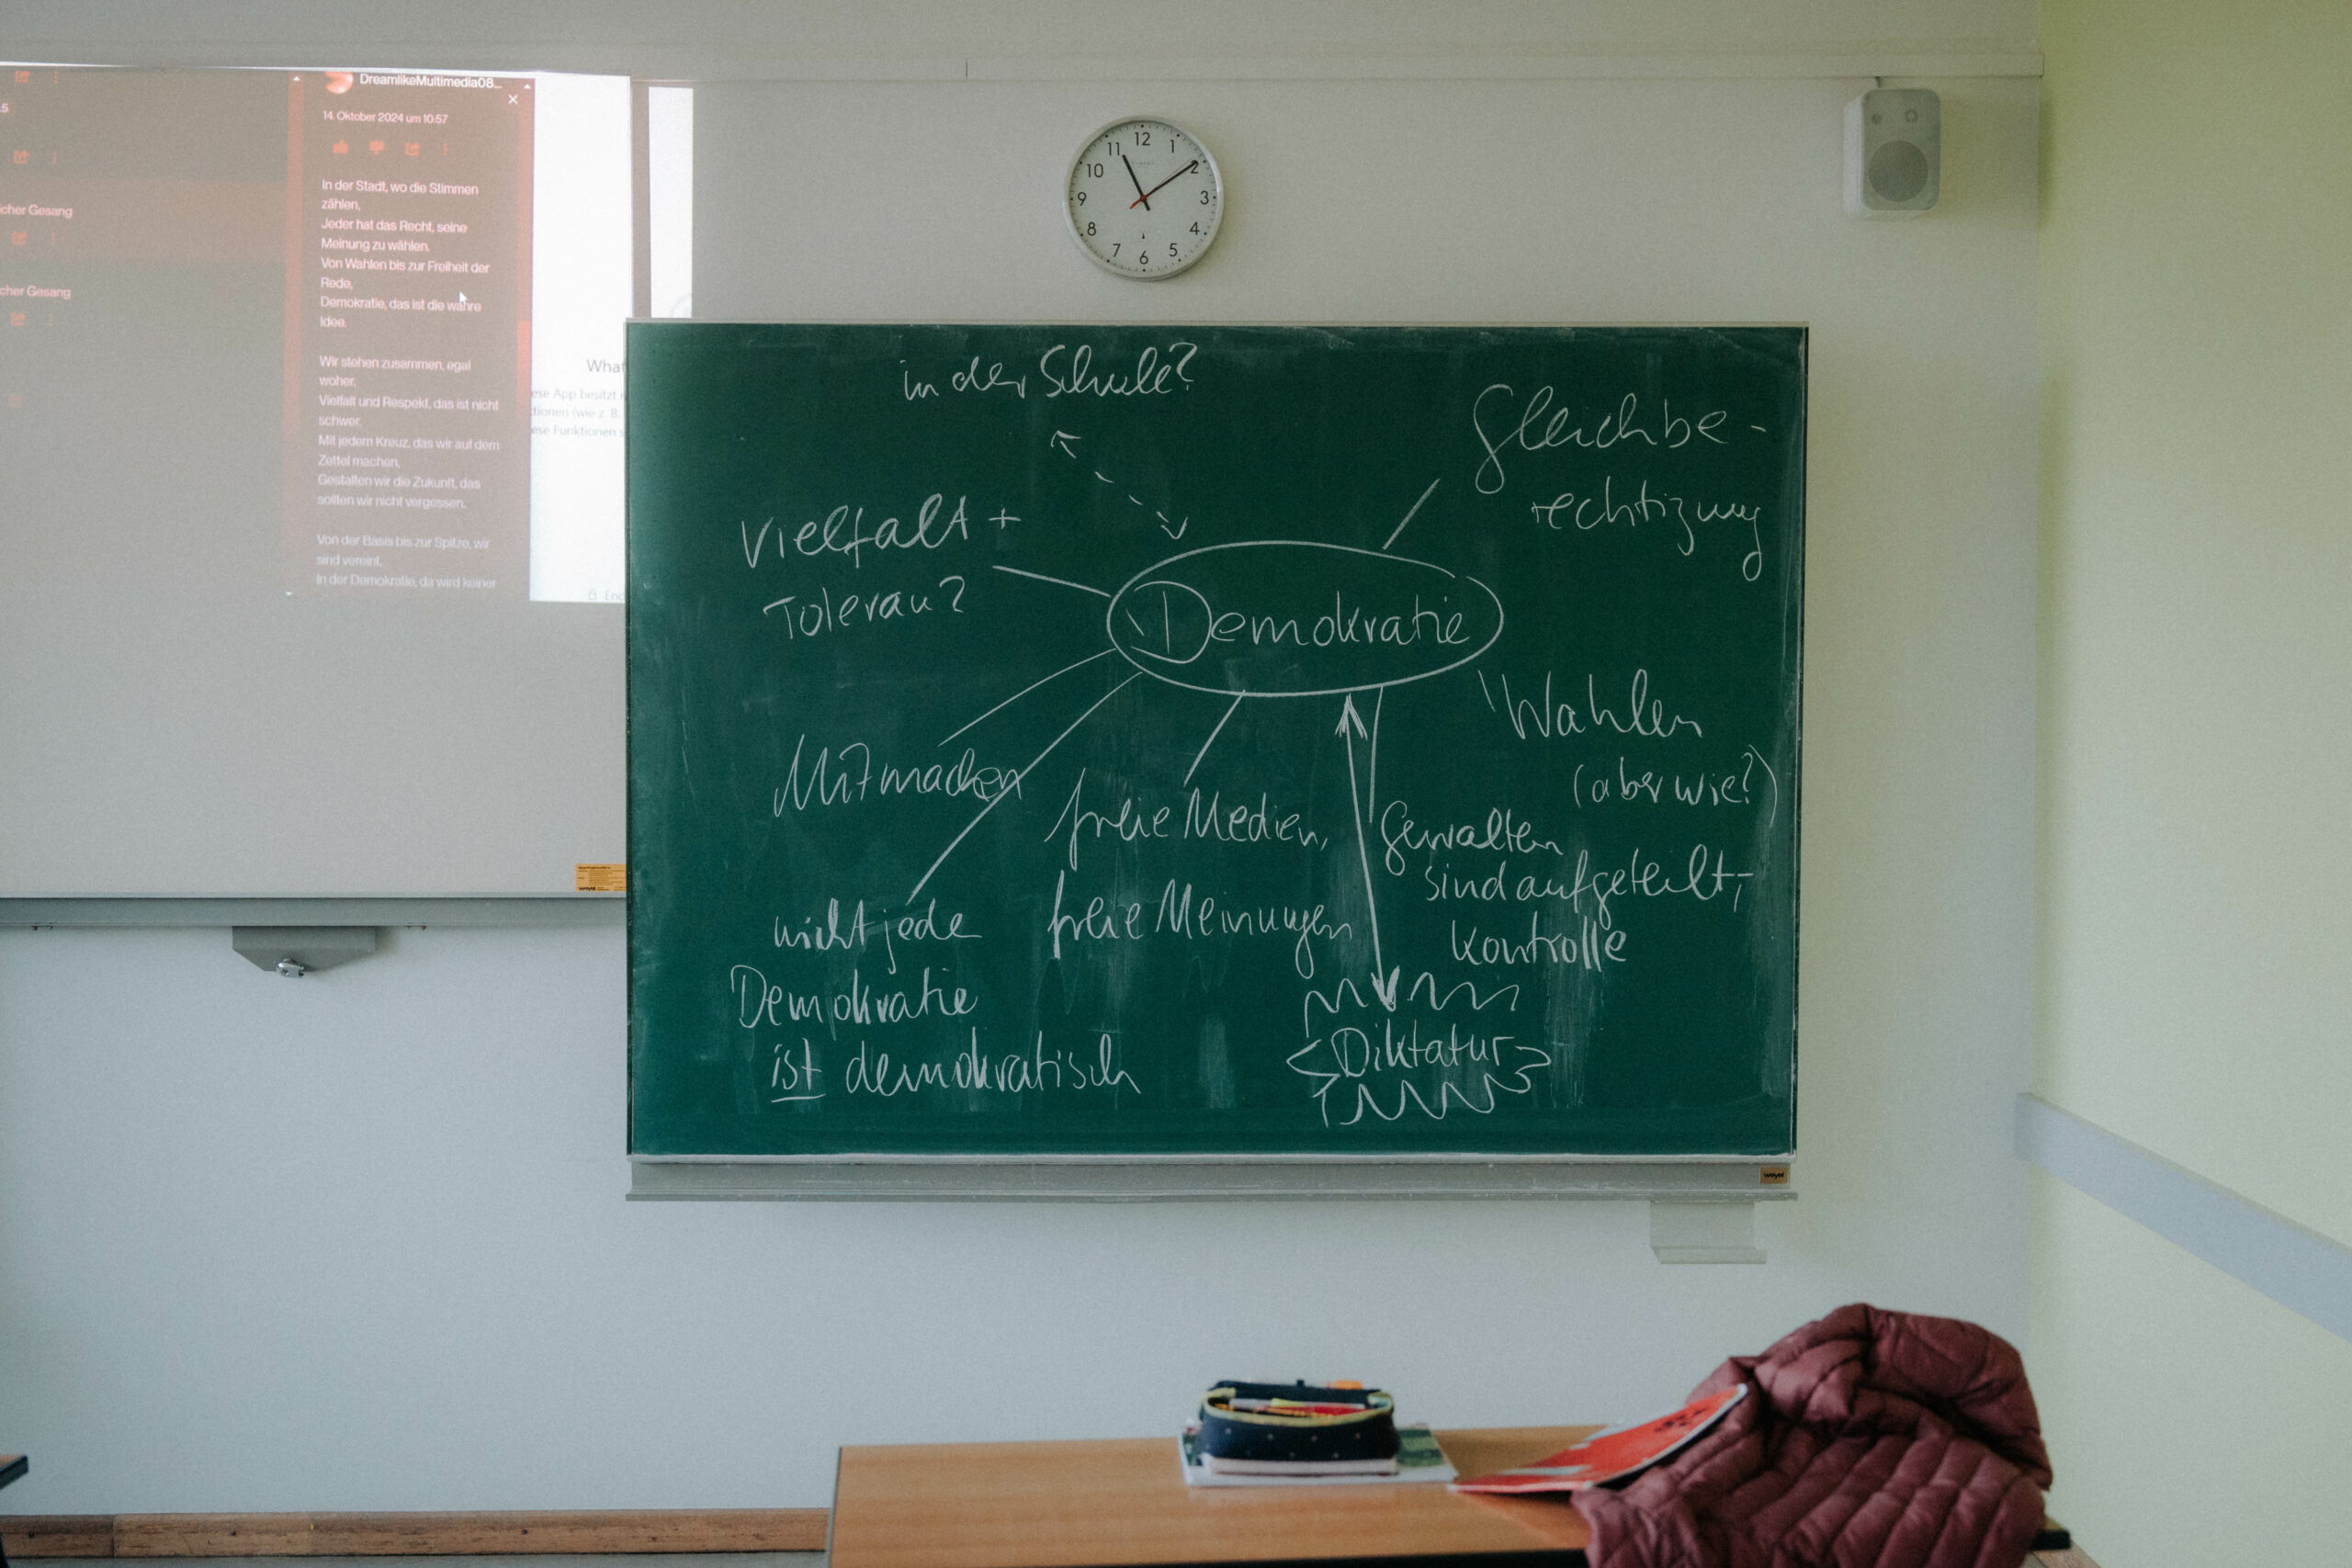 DreamlikeMultimedia08...
14. Oktober 2024 um 10:57
In der Stadt, wo die Stimmen
zählen,
Jeder hat das Recht, seine
Meinung zu wählen.
Von Wahlen bis zur Freiheit der
Rede,
Demokratie, das ist die wahre
Idee.
Wir stehen zusammen, egal
woher,
Vielfalt und Respekt, das ist nicht
schwer,
Mit jedem Kreuz, das wir auf dem
Zettel machen,
Gestalten wir die Zukunft, das
sollten wir nicht vergessen.
Von der Basis bis zur Spitze, wir
sind vereint,
In der Demokratie, da wird keiner
.5
icher Gesang
cher Gesang
What
ese App besitzt
tionen (wie z. B.
ese Funktionen s
End
12
1
2
3
4
5
6
7
8
9
10
11
in der Schule?
Gleichbe-
rechtigung
Vielfalt +
Toleranz
Demokratie
Wahlen
(aber wie?)
Mitmachen
freie Medien,
freie Meinungen
Gewalten
sind aufgeteilt,
Kontrolle
nicht jede
Demokratie
ist demokratisch
Diktatur
weyel
weyel